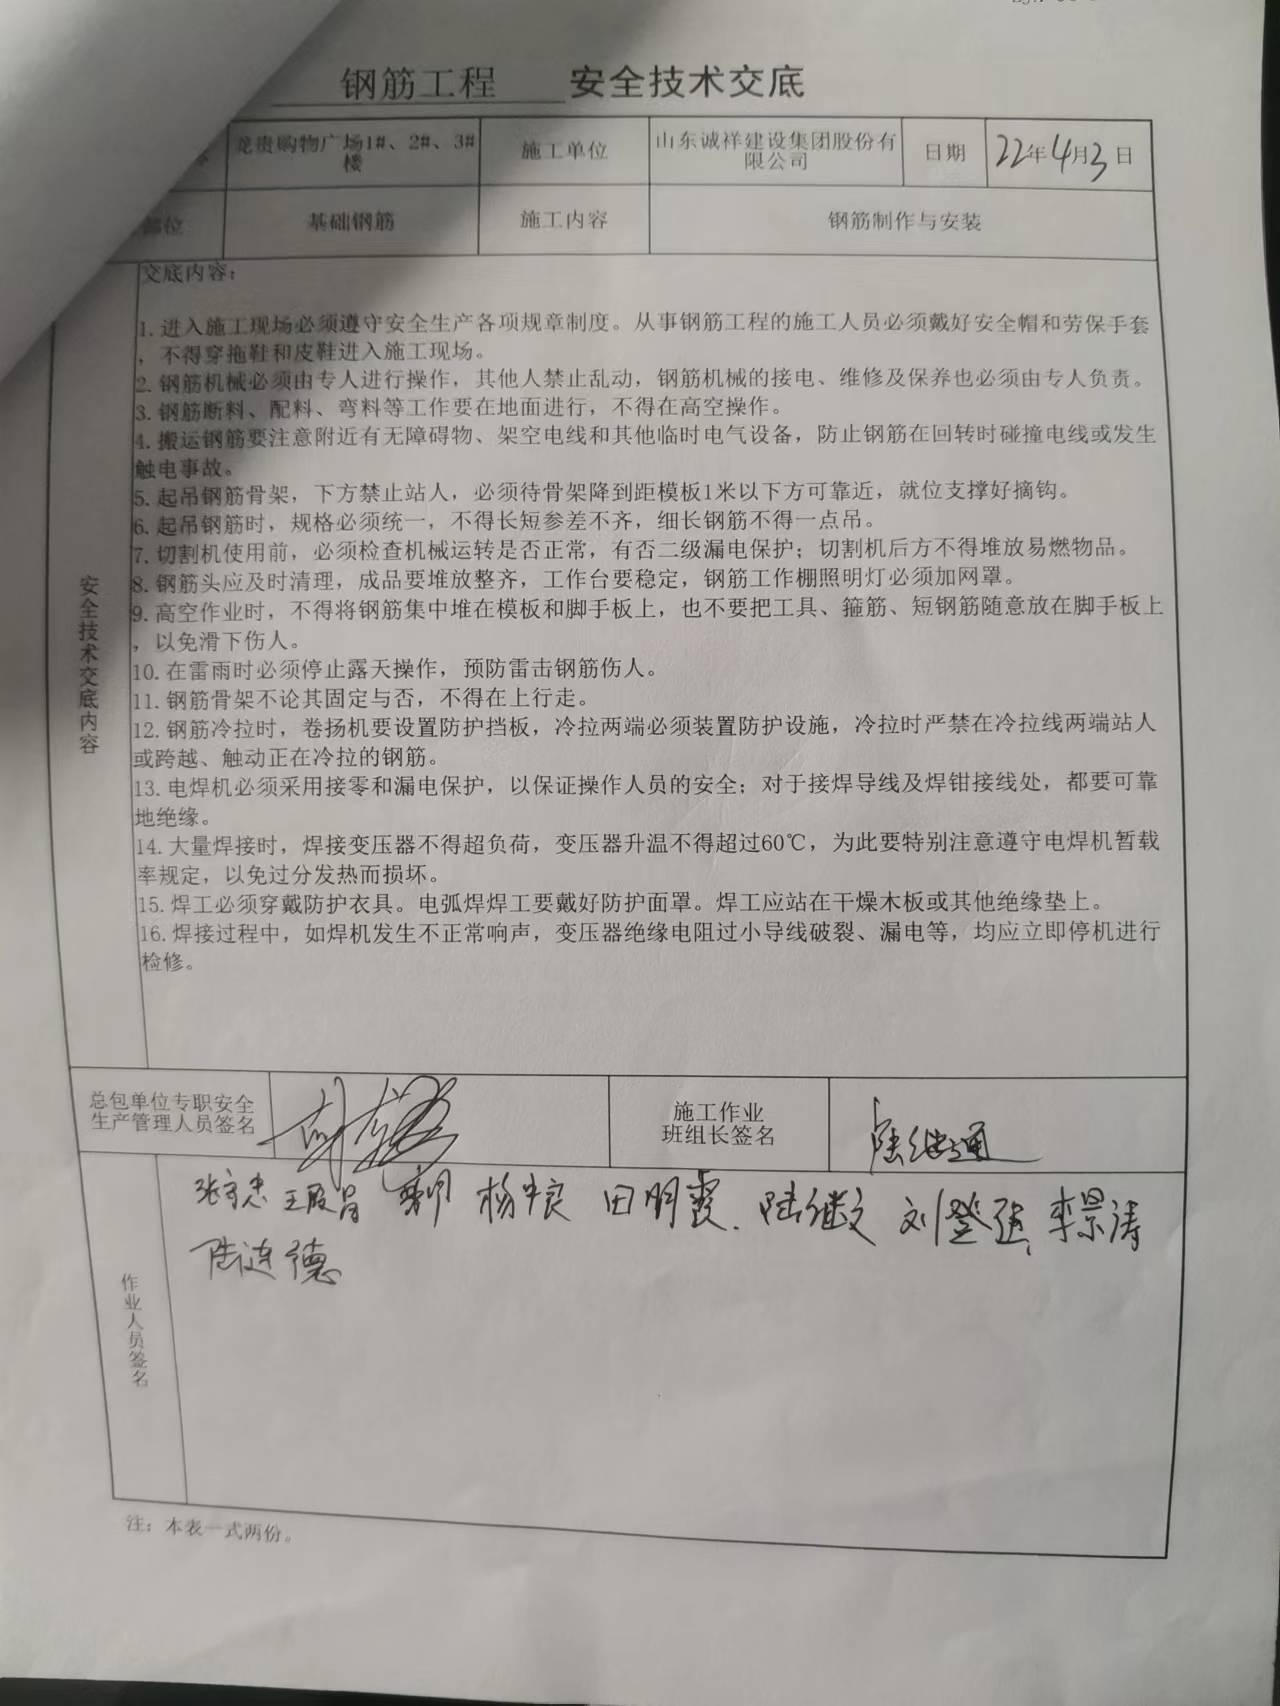 钢筋工程 安全技术交底
龙贵购物广场1#、2#、3#楼 施工单位 山东诚祥建设集团股份有限公司 日期 22年4月3日
部位 基础钢筋 施工内容 钢筋制作与安装
安全技术交底内容
交底内容：
1.进入施工现场必须遵守安全生产各项规章制度。从事钢筋工程的施工人员必须戴好安全帽和劳保手套
，不得穿拖鞋和皮鞋进入施工现场。
2.钢筋机械必须由专人进行操作，其他人禁止乱动，钢筋机械的接电、维修及保养也必须由专人负责。
3.钢筋断料、配料、弯料等工作要在地面进行，不得在高空操作。
4.搬运钢筋要注意附近有无障碍物、架空电线和其他临时电气设备，防止钢筋在回转时碰撞电线或发生
触电事故。
5.起吊钢筋骨架，下方禁止站人，必须待骨架降到距模板1米以下方可靠近，就位支撑好摘钩。
6.起吊钢筋时，规格必须统一，不得长短参差不齐，细长钢筋不得一点吊。
7.切割机使用前，必须检查机械运转是否正常，有否二级漏电保护；切割机后方不得堆放易燃物品。
8.钢筋头应及时清理，成品要堆放整齐，工作台要稳定，钢筋工作棚照明灯必须加网罩。
9.高空作业时，不得将钢筋集中堆在模板和脚手板上，也不要把工具、箍筋、短钢筋随意放在脚手板上
，以免滑下伤人。
10.在雷雨时必须停止露天操作，预防雷击钢筋伤人。
11.钢筋骨架不论其固定与否，不得在上行走。
12.钢筋冷拉时，卷扬机要设置防护挡板，冷拉两端必须装置防护设施，冷拉时严禁在冷拉线两端站人
或跨越、触动正在冷拉的钢筋。
13.电焊机必须采用接零和漏电保护，以保证操作人员的安全；对于接焊导线及焊钳接线处，都要可靠
地绝缘。
14.大量焊接时，焊接变压器不得超负荷，变压器升温不得超过60℃，为此要特别注意遵守电焊机暂载
率规定，以免过分发热而损坏。
15.焊工必须穿戴防护衣具。电弧焊焊工要戴好防护面罩。焊工应站在干燥木板或其他绝缘垫上。
16.焊接过程中，如焊机发生不正常响声，变压器绝缘电阻过小导线破裂、漏电等，均应立即停机进行
检修。
总包单位专职安全
生产管理人员签名
施工作业
班组长签名 陆继通
作业人员签名
张守忠 王殿昌 杨中良 田明霞 陆继文 刘登强 李景涛
陆连德
注：本表一式两份。